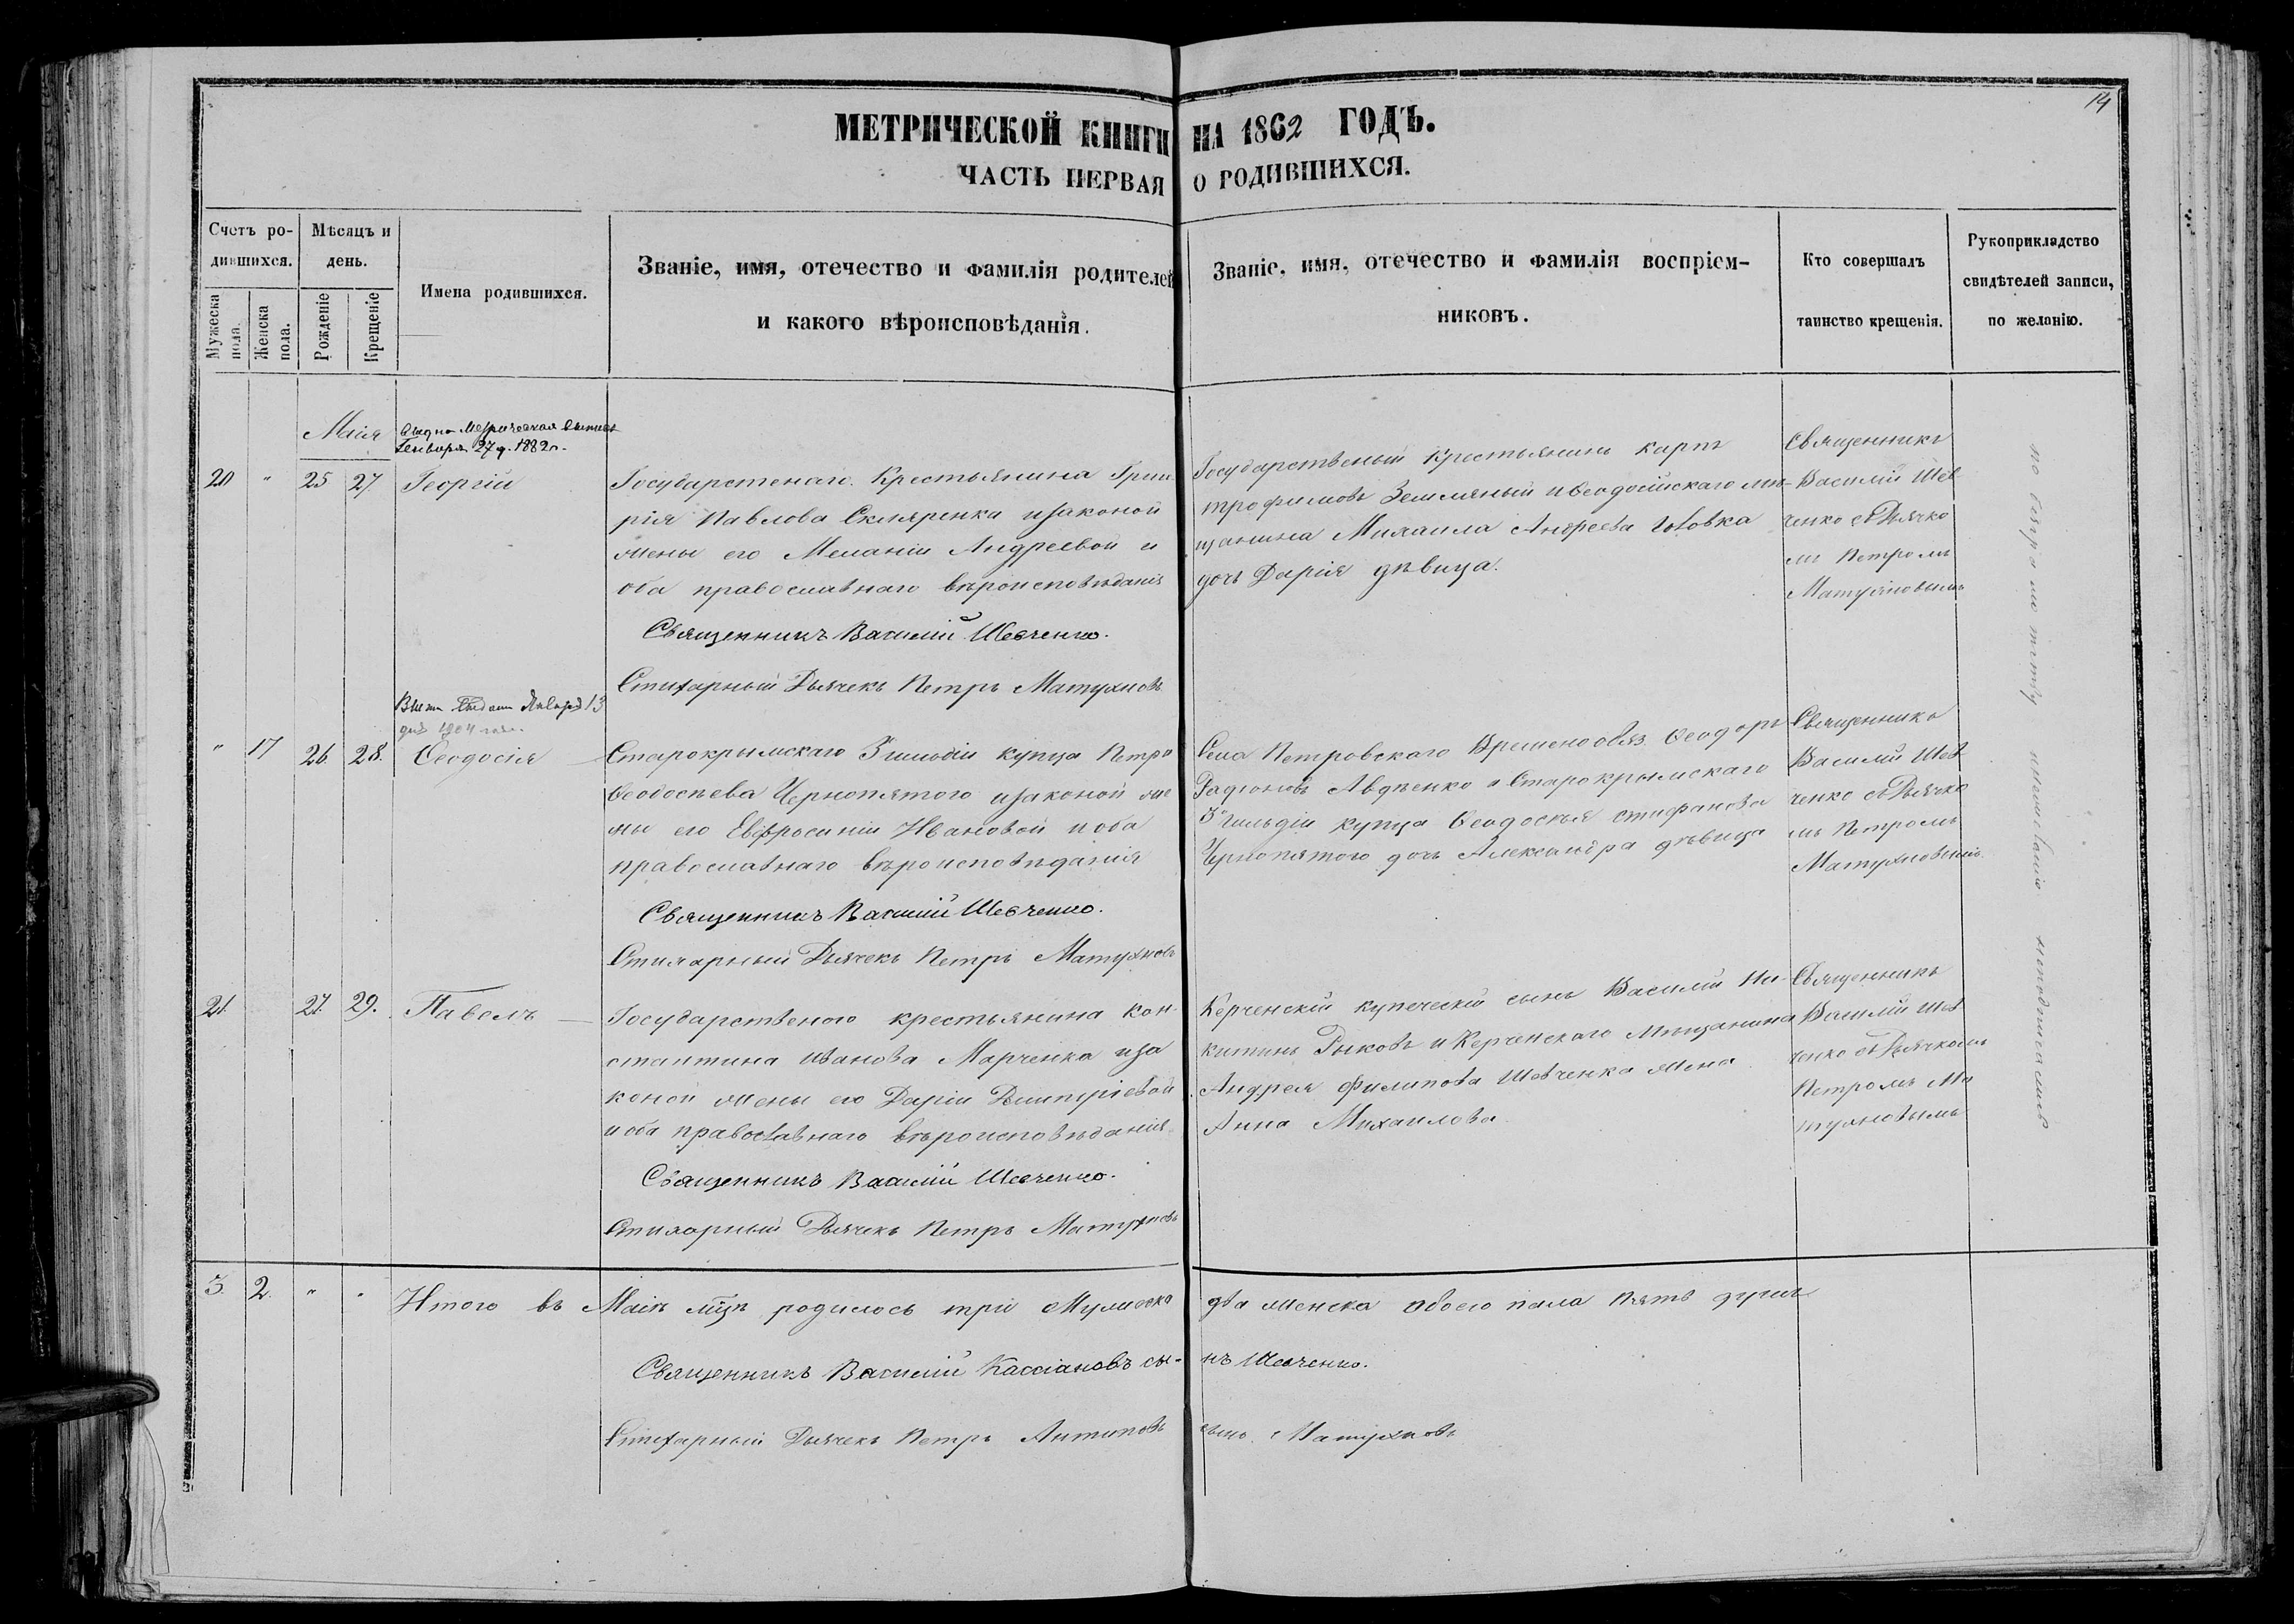 14
МЕТРИЧЕСКОЙ КНИГИ НА 1862 ГОДЪ.
ЧАСТЬ ПЕРВАЯ О РОДИВШИХСЯ.
Счетъ ро-
дившихся.
Мужеска
пола.
Женска
пола.
Мѣсяцъ и
день.
Рожденіе
Крещеніе
Имена родившихся.
Званіе, имя, отечество и фамилія родителей
и какого вѣроисповѣданія.
Званіе, имя, отечество и фамилія воспріем-
никовъ.
Кто совершалъ
таинство крещенія.
Рукоприкладство
свидѣтелей записи,
по желанію.
Маія
Метрическая
Генваря 27 д. 1882 г.
20 " 25 27 Георгій
Государстенаго Крестьянина Григо
рія Павлова Скляренка изаконой
жены его Меланіи Андреевой и
оба православнаго вѣроисповѣданія
Священникъ Василій Шевченко.
Стихарный Дьячекъ Петръ Матухновъ
Государственый Крестьянинъ Карпъ
трофимовъ Земляный и Ѳеодосійскаго мѣ-
щанина Михаила Андреева
дочь Дарія дѣвица.
Священникъ
Василій Шев
ченко съ Дьячко
мъ Петромъ
Матухновымъ
Января 13
дня 1904 года.
" 17 26 28. Ѳеодосія
Старокрымскаго 3 гильдіи купца Петра
Ѳеодосѣева Чернопятого изаконой же
ны его Евфросиніи Ивановой и оба
православнаго вѣроисповѣданія
Священникъ Василій Шевченко.
Стихарный Дьячекъ Петръ Матухновъ
Села Петровскаго Временнообяз. Ѳеодоръ
Радіоновъ Авдѣенко и Старокрымскаго
3 гильдіи купца Ѳеодосѣя стифанова
Чернопятого дочь Александра дѣвица
Священникъ
Василій Шев
ченко съ Дьячко
мъ Петромъ
Матухновымъ.
21. 27. 29. Павелъ
Государственого крестьянина Кон
стантина иванова Марченка иза
коной жены его Даріи Димитріевой
и оба православнаго вѣроисповѣданія
Священникъ Василій Шевченко.
Стихарный Дьячекъ Петръ Матухновъ
Керченскій купеческій сынъ Василій Ни-
китинъ Рыковъ и Керченского Мѣщанина
Андрея Филипова Шевченка жена
Анна Михаилова.
Священникъ
Василій Шев
ченко съ Дьячкомъ
Петромъ Ма
тухновымъ
неподписались
3. 2. " " Итого въ Маіѣ мцѣ родилось тріи Мужеска два женска обоего пола пять душъ
Священникъ Василій Кассіановъ сы-нъ Шевченко.
Стихарный Дьячекъ Петръ Антиповъ сынъ Матухновъ